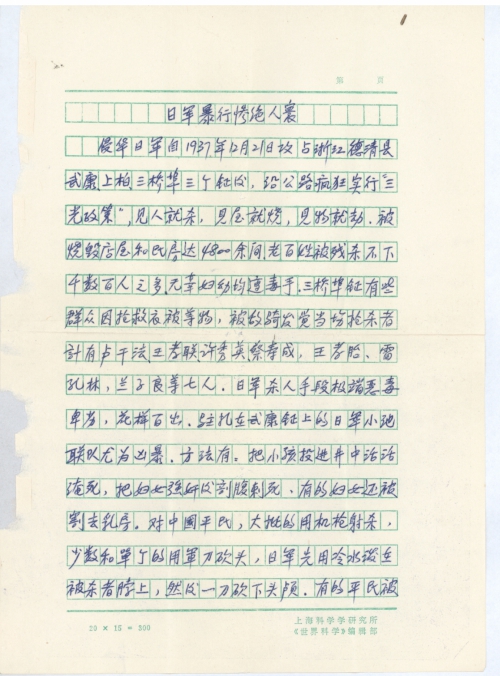 第 页
日军暴行惨绝人寰
侵华日军自1937年12月21日攻占浙江德清县
武康上柏三桥埠三个镇后，沿公路疯狂实行“三
光政策”，见人就杀，见屋就烧，见物就劫．被
烧毁店屋和民房达4800余间．老百姓被残杀不下
千数百人之多．无辜妇幼均遭毒手．三桥埠镇有些
群众因抢救衣被等物，被敌骑发觉当场枪杀者
計有卢干法王孝联许秀英蔡寿成，王孝胎、雷
孔林，兰子良等七人．日军杀人手段极端恶毒
卑劣，花样百出．驻扎在武康镇上的日军小池
联队尤为凶暴．方法有．把小孩投进井中活活
淹死，把妇女强奸后剖腹刺死、有的妇女还被
割去乳房．对中国平民，大批的用机枪射杀，
少数和单个的用军刀砍头，日军先用冷水泼在
被杀者脖上，然后一刀砍下头颅．有的平民被
20 × 15 = 300
上海科学学研究所
《世界科学》编辑部